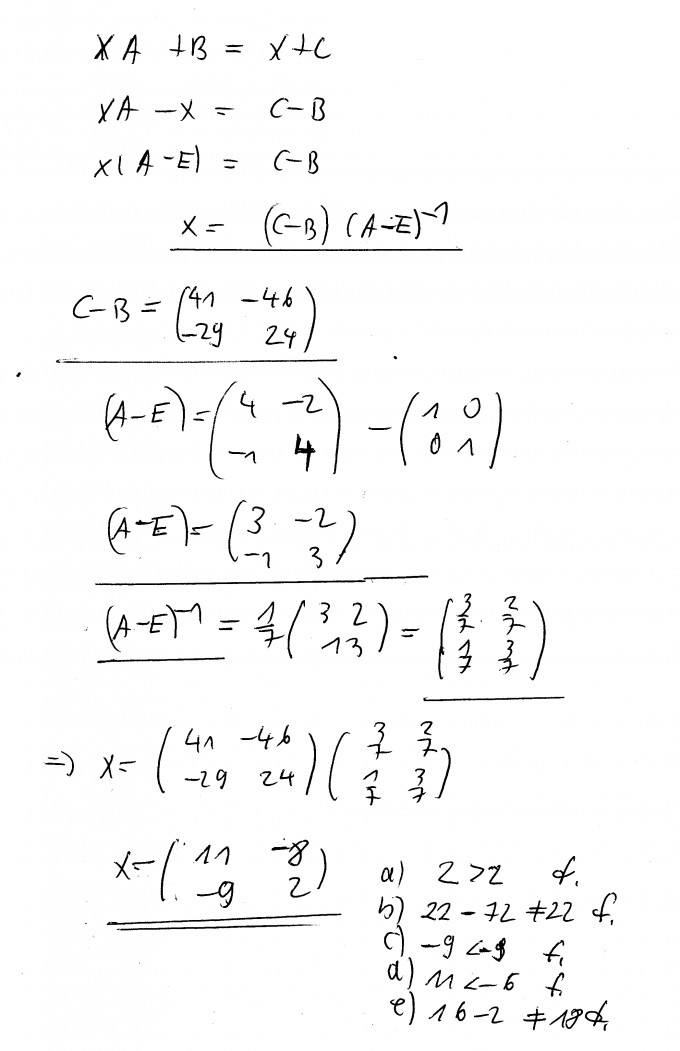 XA + B = X + C
XA - X = C - B
X(A - E) = C - B
X = (C - B) (A - E)^-1
C - B = (41 -46
-29 24)
(A - E) = (4 -2
-1 4) - (1 0
0 1)
(A - E) = (3 -2
-1 3)
(A - E)^-1 = 1/7 (3 2
1 3) = (3/7 2/7
1/7 3/7)
=> X = (41 -46
-29 24) (3/7 2/7
1/7 3/7)
X = (11 -8
-9 2)
a) 2 > 2 f.
b) 22 - 72 ≠ 22 f.
c) -9 < -9 f.
d) 11 < -6 f.
e) 16 - 2 ≠ 18 f.